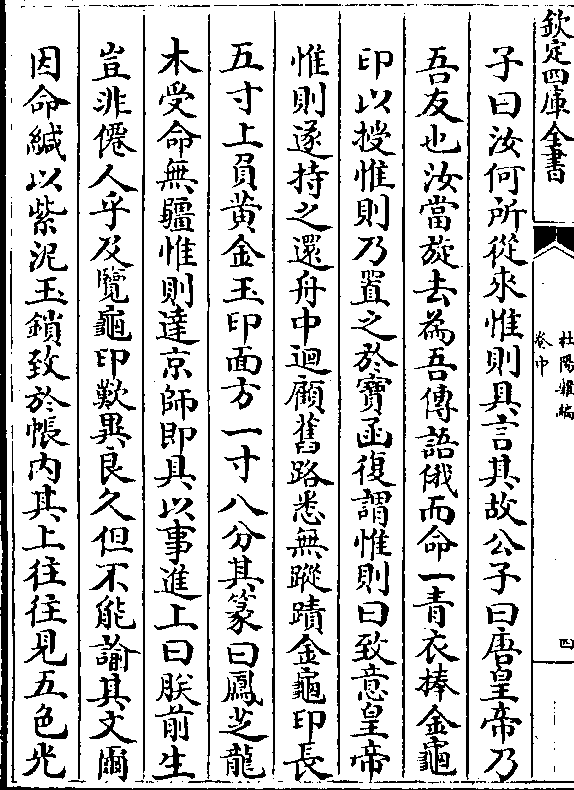 欽定四庫全書
杜陽雜編
卷中
四
子曰汝何所從來惟則具言其故公子曰唐皇帝乃
吾友也汝當旋去為吾傳語俄而命一青衣捧金龜
印以授惟則乃置之於寶函復謂惟則曰致意皇帝
惟則遂持之還舟中迴顧舊路悉無蹤蹟金龜印長
五寸上負黄金玉印面方一寸八分其篆曰鳳芝龍
木受命無疆惟則達京師即具以事進上曰朕前生
豈非僊人乎及覽龜印歎異良久但不能諭其文爾
因命緘以紫泥玉鎖致於帳内其上往往見五色光